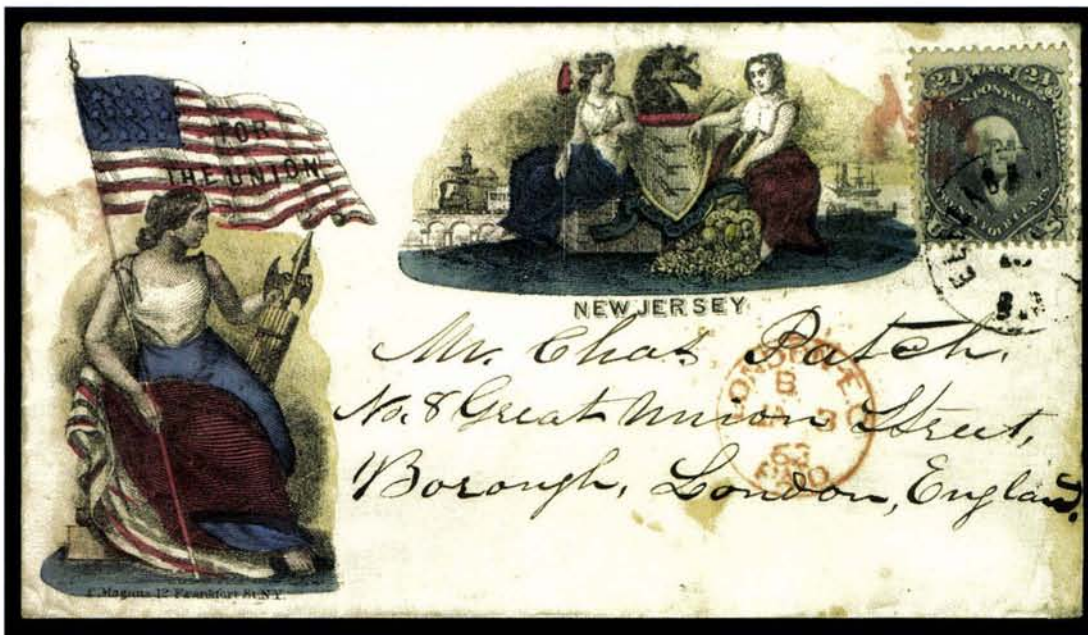 FOR
THE UNION
NEW JERSEY
24 24
U.S. POSTAGE
Mr. Chas Patch,
No. 8 Great Union Street,
Borough, London, England.
LONDON E.C
PAID
Magnus 12 Frankfort St. N.Y.